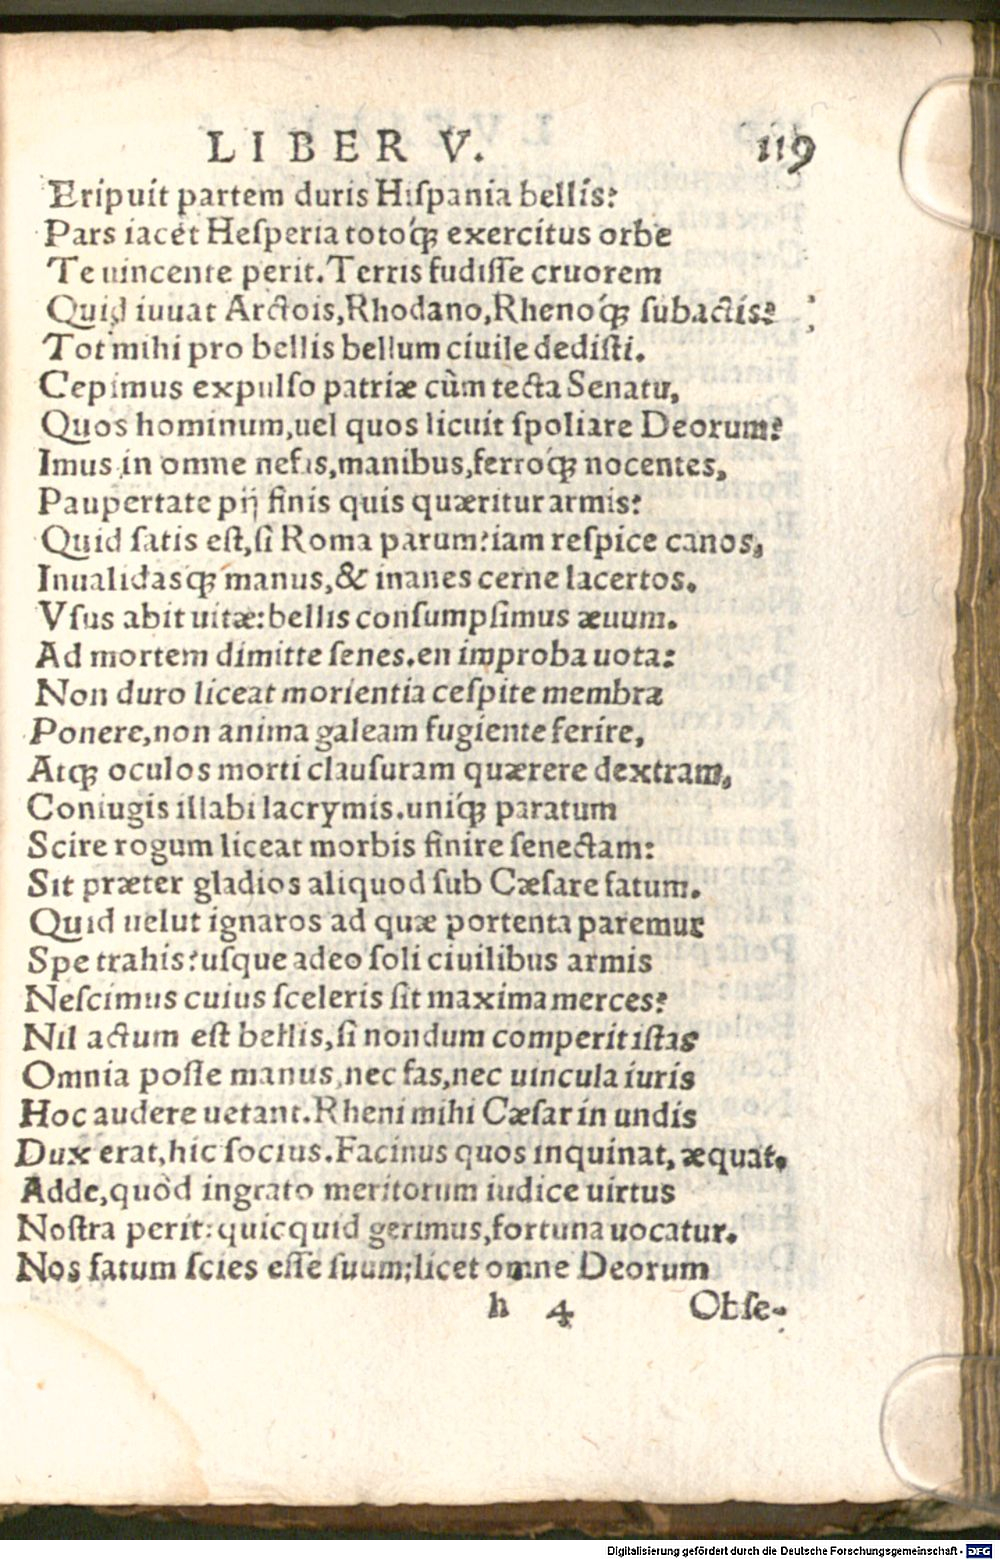 LIBER V. 119
Eripuit partem duris Hiſpania bellis?
Pars iacet Heſperia totoq́ꝫ exercitus orbe
Te uincente perit. Terris fudiſſe cruorem
Quid iuuat Arctois, Rhodano, Rhenoq́ꝫ ſubactis?
Tot mihi pro bellis bellum ciuile dediſti.
Cepimus expulſo patriæ cùm tecta Senatu,
Quos hominum, uel quos licuit ſpoliare Deorum?
Imus in omne nefas, manibus, ferroq́ꝫ nocentes,
Paupertate pij finis quis quæritur armis?
Quid ſatis eſt, ſi Roma parum? iam reſpice canos,
Inualidasqꝫ manus, & inanes cerne lacertos.
Vſus abit uitæ: bellis conſumpſimus æuum.
Ad mortem dimitte ſenes. en improba uota:
Non duro liceat morientia ceſpite membra
Ponere, non anima galeam fugiente ferire,
Atqꝫ oculos morti clauſuram quærere dextram,
Coniugis illabi lacrymis. uniq́ꝫ paratum
Scire rogum liceat morbis finire ſenectam:
Sit præter gladios aliquod ſub Cæſare fatum.
Quid uelut ignaros ad quæ portenta paremur
Spe trahis? uſque adeo ſoli ciuilibus armis
Neſcimus cuius ſceleris ſit maxima merces?
Nil actum eſt bellis, ſi nondum comperit iſtas
Omnia poſſe manus, nec fas, nec uincula iuris
Hoc audere uetant. Rheni mihi Cæſar in undis
Dux erat, hic ſocius. Facinus quos inquinat, æquat.
Adde, quòd ingrato meritorum iudice uirtus
Noſtra perit: quicquid gerimus, fortuna uocatur.
Nos fatum ſcies eſſe ſuum; licet omne Deorum
h 4 Obſe-
Digitalisierung gefördert durch die Deutsche Forschungsgemeinschaft - DFG